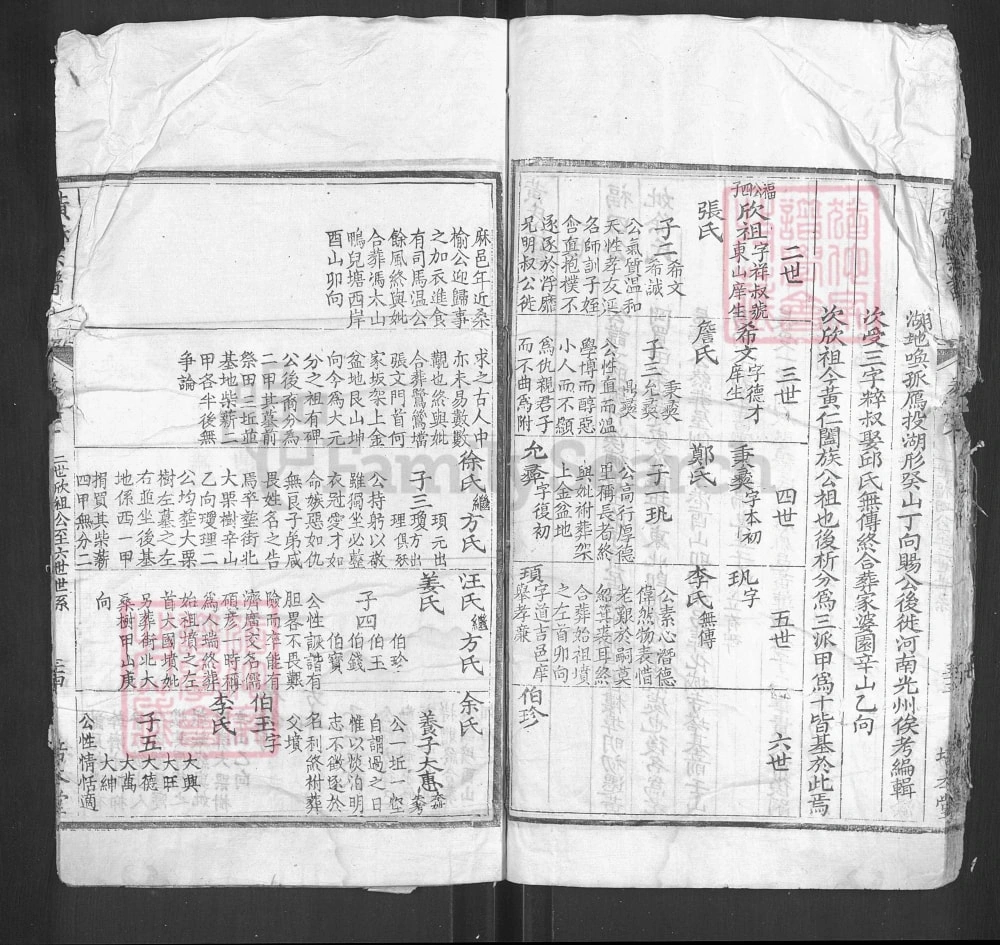 湖地喚孤鴈投湖形癸山丁向賜公後徙河南光州俟考編輯
次受三字粹叔娶邱氏無傳終合葬家婆園辛山乙向
次欣祖今黃仁闔族公祖也後析分爲三派甲爲十皆基於此焉
二世
三世
四世
五世
六世
福公四子
欣祖字祥叔號東山庠生
張氏
子二希文希誠
公氣質温和
天性孝友延
名師訓子姪
含真抱樸不
逐逐於浮靡
兄明叔公徙
麻邑年近桑
榆公迎歸事
之加衣進食
有司馬温公
餘風終與妣
合葬馮木山
鴨兒塘西岸
酉山卯向
希文字德才庠生
詹氏
子三秉彝允彝鼎彝
公性直而温
學博而醇惡
小人而不顯
爲仇親君子
而不曲爲附
求之古人中
亦未易數數
觀也然與妣
合葬鷺鷥壋
張文門首何
家坂架上金
盆地艮山坤
向今爲大元
分之祖有碑
公後裔分爲
二甲其墓前
祭田三坵並
基地柴薪二
甲各半後無
爭論
秉彝字本初
鄭氏
子一玑
公高行厚德
里稱長者終
與妣祔葬架
上金盆地
允彝字復初
徐氏繼方氏
子三瓊方出
頊元出
理俱殀
公持躬以敬
雖獨坐必整
衣冠愛才如
命嫉惡如仇
無艮子弟咸
畏姓名之告
爲卒塟街北
大栗樹辛山
乙向瓊理二
公均葬大栗
樹左墓之左
右並坐後基
地係西一甲
捐買其柴薪
四甲無分二
玑字
李氏無傳
公素心潛德
偉然物表惜
老艱於嗣莫
紹箕裘耳終
合葬始祖墳
之左首卯向
頊字道吉邑庠舉孝廉
汪氏繼方氏
姜氏
子四
伯珍
伯玉
伯錢
伯寶
公性詼諧有
胆畧不畏艱
險而卒能有
濟廣交名儒
碩彦一時稱
爲不瑞終葬
始祖墳之左
首大國墳妣
另葬街北大
桑樹甲山庚
向
伯珍
余氏
養子大惠
公一坵一壑
自謂過之日
惟以淡泊明
志不徼逐於
名利終祔葬
父墳
伯玉字
李氏
子五
大興
大旺
大德
大萬
大紳
公性情恬適
二世欣祖公至六世世系